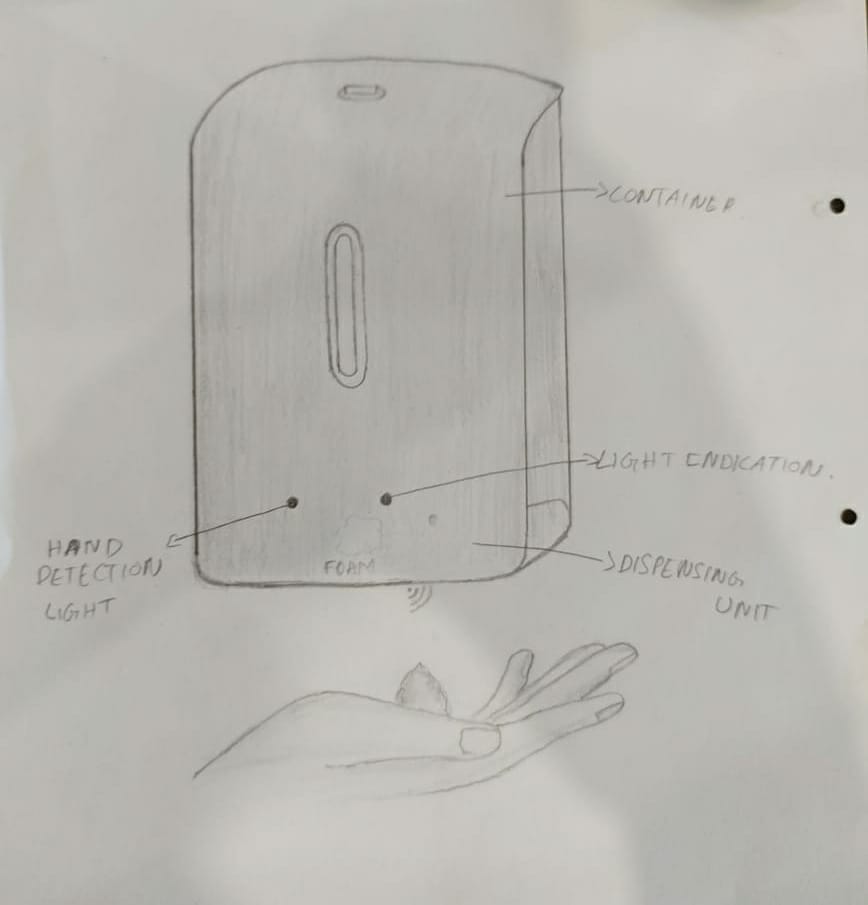 CONTAINER
LIGHT INDICATION.
HAND
DETECTION
LIGHT
FOAM
DISPENSING
UNIT